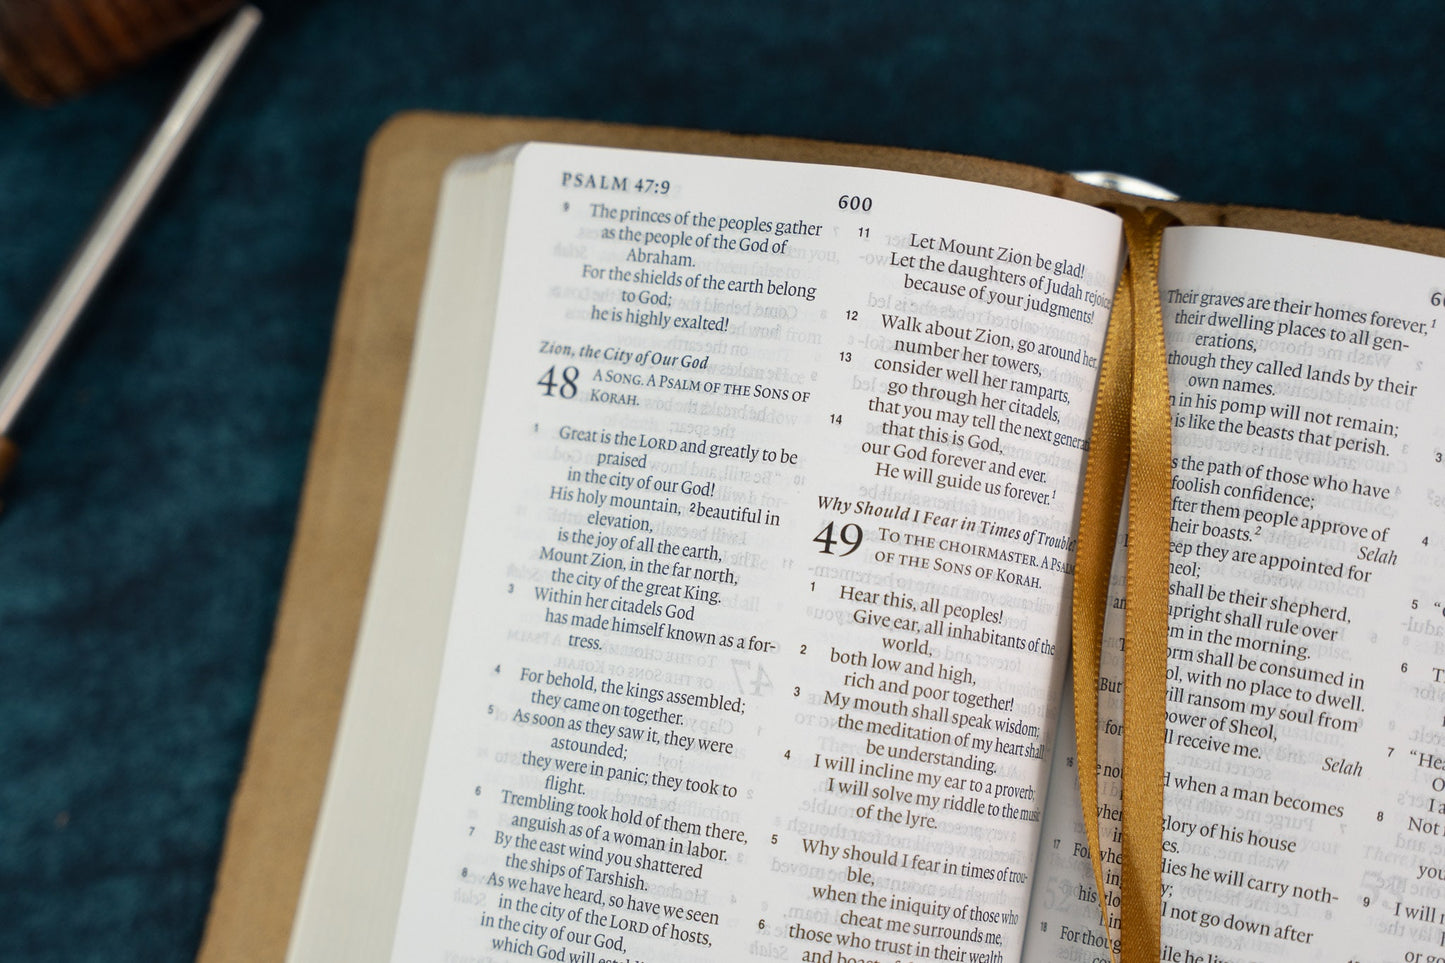 PSALM 47:9
600
9 The princes of the peoples gather
as the people of the God of
Abraham.
For the shields of the earth belong
to God;
he is highly exalted!
Zion, the City of Our God
48 A SONG. A PSALM OF THE SONS OF
KORAH.
1 Great is the LORD and greatly to be
praised
in the city of our God!
His holy mountain, 2 beautiful in
elevation,
is the joy of all the earth,
Mount Zion, in the far north,
the city of the great King.
3 Within her citadels God
has made himself known as a for-
tress.
4 For behold, the kings assembled;
they came on together.
5 As soon as they saw it, they were
astounded;
they were in panic; they took to
flight.
6 Trembling took hold of them there,
anguish as of a woman in labor.
7 By the east wind you shattered
the ships of Tarshish.
8 As we have heard, so have we seen
in the city of the LORD of hosts,
in the city of our God,
which God will
11 Let Mount Zion be glad!
Let the daughters of Judah rejoice
because of your judgments!
12 Walk about Zion, go around her,
number her towers,
13 consider well her ramparts,
go through her citadels,
that you may tell the next
14 that this is God,
our God forever and ever.
He will guide us forever.1
Why Should I Fear in Times of Trouble?
49 TO THE CHOIRMASTER. A
OF THE SONS OF KORAH.
1 Hear this, all peoples!
Give ear, all inhabitants of the
world,
2 both low and high,
rich and poor together!
3 My mouth shall speak wisdom;
the meditation of my heart shall
be understanding.
4 I will incline my ear to a proverb;
I will solve my riddle to the
of the lyre.
5 Why should I fear in times of trou-
ble,
when the iniquity of those who
cheat me surrounds me,
6 those who trust in their wealth
and boast of
Their graves are their homes forever,1
their dwelling places to all gen-
erations,
though they called lands by their
own names.
in his pomp will not remain;
is like the beasts that perish.
the path of those who have
foolish confidence;
after them people approve of
their boasts.2 Selah
they are appointed for
shall be their shepherd,
upright shall rule over
in the morning.
shall be consumed in
with no place to dwell.
will ransom my soul from
power of Sheol,
receive me. Selah
16
when a man becomes
glory of his house
17 For
dies he will carry noth-
his
not go down after
18 For though
while he
3
4
5
6
7
8 Not
9 I will
or